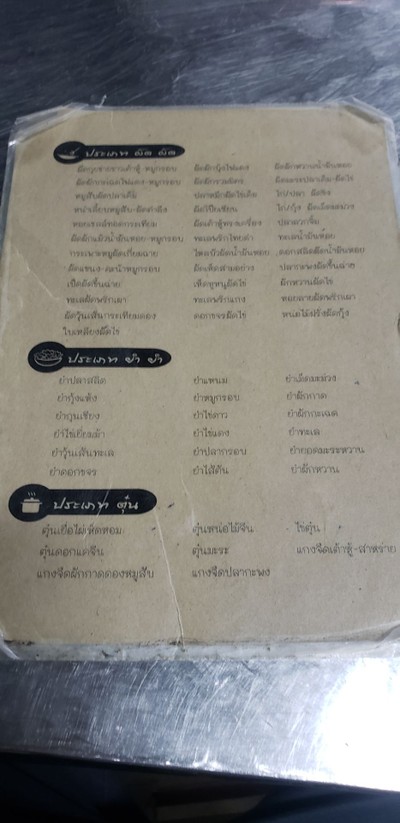 ประเภท ผัด ผัด
ผัดกุยช่ายขาวเต้าหู้-หมูกรอบ ผัดผักบุ้งไฟแดง ผัดผักหวานน้ำมันหอย
ผัดผักกะเฉดไฟแดง-หมูกรอบ ผัดผักรวมมิตร
หมูสับผัดปลาเค็ม ปลาหมึกผัดไข่เค็ม ไก่/ปลา ผัดขิง
หนำเลี๊ยบหมูสับ-ผัดคำดึง ผัดโป๊ยเซียน ไก่/กุ้ง ผัดเม็ดมะม่วง
หอยเชลล์ทอดกระเทียม ผัดเต้าหู้ทรงเครื่อง
ผัดผักแม้วน้ำมันหอย-หมูกรอบ ทะเลพริกไทยดำ ทะเลน้ำมันหอย
กระเพาะหมูผัดเกี้ยมฉ่าย ไหลบัวผัดน้ำมันหอย ดอกสลิดผัดน้ำมันหอย
ผัดแขนง-คะน้าหมูกรอบ ผัดเห็ดสามอย่าง ปลากะพงผัดขึ้นฉ่าย
เป็ดผัดขึ้นฉ่าย เห็ดหูหนูผัดไข่ ผักหวานผัดไข่
ทะเลผัดพริกเผา ทะเลพริกแกง หอยลายผัดพริกเผา
ผัดวุ้นเส้นกระเทียมดอง ดอกขจรผัดไข่ หน่อไม้ฝรั่งผัดกุ้ง
ใบเหลียงผัดไข่
ประเภท ยำ ยำ
ยำปลาสลิด ยำแหนม ยำเม็ดมะม่วง
ยำกุ้งแห้ง ยำหมูกรอบ ยำผักกาด
ยำกุนเชียง ยำไข่ดาว ยำผักกะเฉด
ยำไข่เยี่ยมม้า ยำไข่แดง ยำทะเล
ยำวุ้นเส้นทะเล ยำปลากรอบ ยำยอดมะระหวาน
ยำดอกขจร ยำไส้ตัน ยำผักหวาน
ประเภท ตุ๋น
ตุ๋นเยื่อไผ่เห็ดหอม ตุ๋นหน่อไม้จีน ไข่ตุ๋น
ตุ๋นดอกแคจีน ตุ๋นมะระ แกงจืดเต้าหู้-สาหร่าย
แกงจืดผักกาดดองหมูสับ แกงจืดปลากะพง